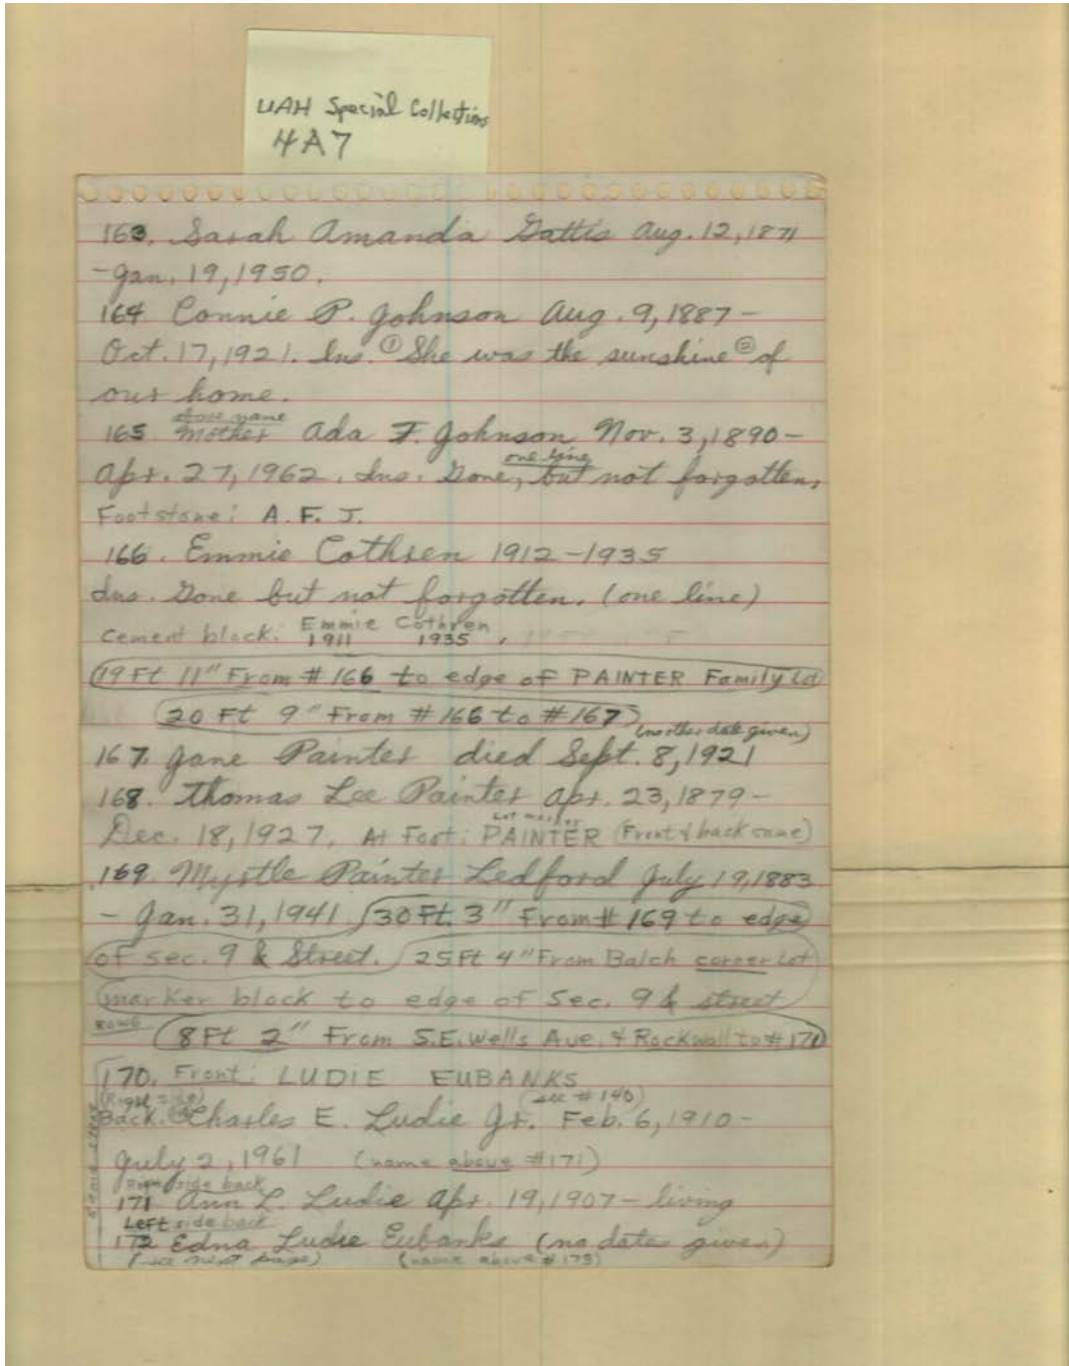 UAH Special Collections
4A7
163. Sarah Amanda Gattis Aug. 12, 1871
- Jan. 19, 1950.
164 Connie P. Johnson Aug. 9, 1887 -
Oct. 17, 1921. Ins. ① She was the sunshine ② of
our home.
above name
165. Mother Ada F. Johnson Nov. 3, 1890 -
one line
Apr. 27, 1962. Ins. Gone, but not forgotten.
Footstone: A. F. J.
166. Emmie Cothren 1912 - 1935
Ins. Gone but not forgotten. (one line)
Cement block: Emmie Cothren
1911 1935.
19 Ft 11" From # 166 to edge of PAINTER Family Lot
20 Ft 9" From # 166 to # 167
(no other date given)
167. Jane Painter died Sept. 8, 1921
168. Thomas Lee Painter Apr. 23, 1879 -
Lot marker
Dec. 18, 1927. At Foot: PAINTER (Front & back same)
169. Myrtle Painter Ledford July 19, 1883
- Jan. 31, 1941. 30 Ft. 3" From # 169 to edge
of sec. 9 & Street. 25 Ft 4" From Balch corner Lot
marker block to edge of Sec. 9 & street
8 Ft 2" From S.E. Wells Ave. & Rockwall to # 171
170. Front: LUDIE EUBANKS
(see # 140)
Back. Charles E. Ludie Jr. Feb. 6, 1910 -
July 2, 1961 (name above #171)
Right side back
171 Ann L. Ludie Apr. 19, 1907 - living
Left side back
172 Edna Ludie Eubanks (no dates given)
(see next page) (name above # 173)